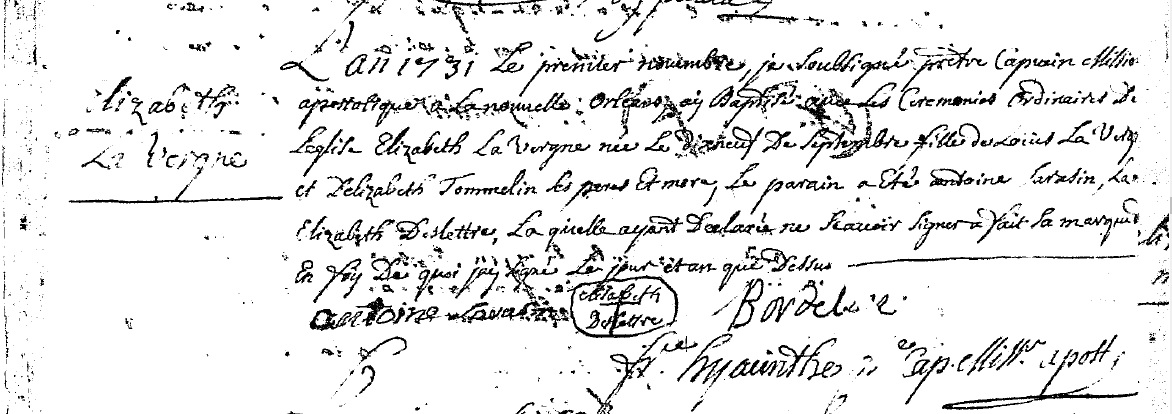 Elizabeth
La Vergne
L'An 1731 Le premier novembre, je Soubsigné prêtre Capucin Missio
apostolique a La nouvelle Orleans, ay Baptisé avec Les Ceremonies Ordinaires De
Leglise Elizabeth La Vergne née Le dixneuf De Septembre fille de Loüis La Verg
et Delizabeth Tommelin ses peres Et mere, Le parain a Eté antoine Sarasin, La
Elizabeth Deslettre, La quelle ayant Declaré ne Scavoir signer a fait sa marque
En foy De quoi jay signé Le jour et an que Dessus
antoine Sarasin
elizabeth
Deslettre
fr. hyacinthe Cap. Miss. apost